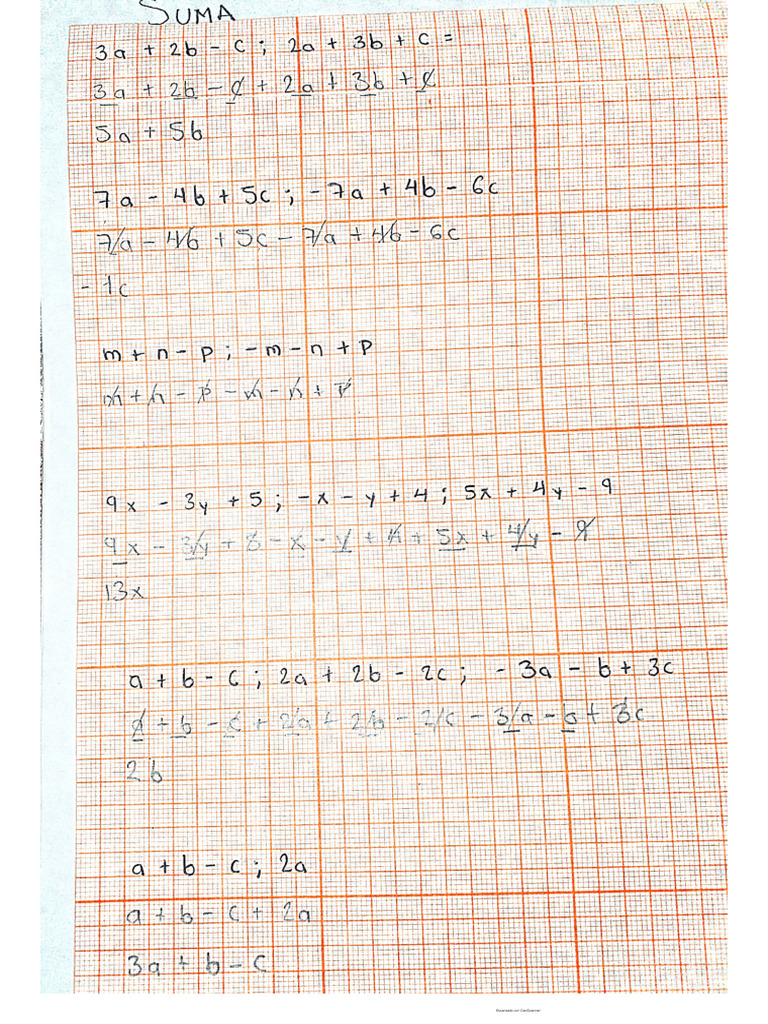 SUMA
3a + 2b - c ; 2a + 3b + c =
3a + 2b - c + 2a + 3b + c
5a + 5b
7a - 4b + 5c ; -7a + 4b - 6c
7a - 4b + 5c - 7a + 4b - 6c
- 1c
m + n - p ; - m - n + p
m + n - p - m - n + p
9x - 3y + 5 ; -x - y + 4 ; 5x + 4y - 9
9x - 3y + 5 - x - y + 4 + 5x + 4y - 9
13x
a + b - c ; 2a + 2b - 2c ; - 3a - b + 3c
a + b - c + 2a + 2b - 2c - 3a - b + 3c
2b
a + b - c ; 2a
a + b - c + 2a
3a + b - c
Escaneado con CamScanner